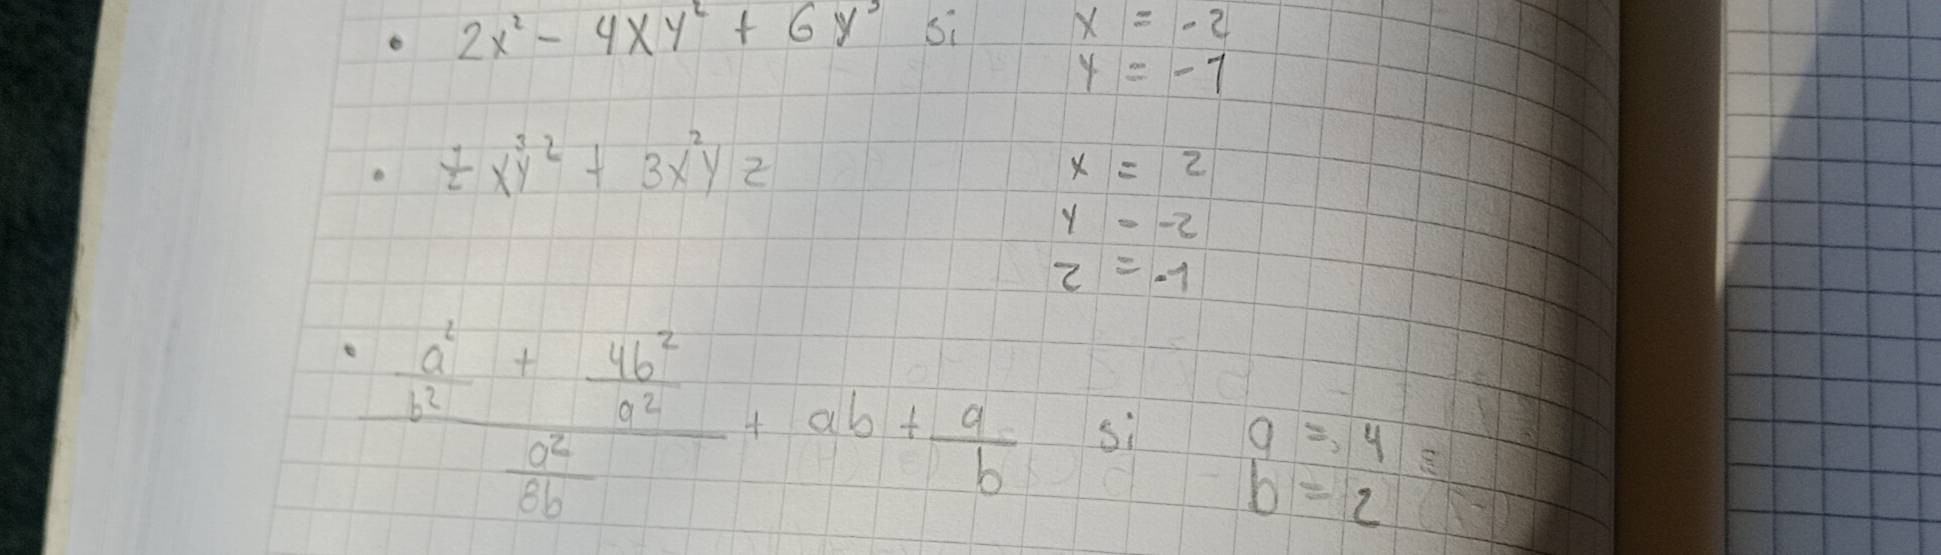 • 2x² - 4xy² + 6y³ si x = -2
y = -1
• 1/2 x³y² + 3x²yz x = 2
y = -2
z = -1
• (a²/b² + 4b²/a²)/(a²/8b) + ab + a/b si a = 4
b = 2